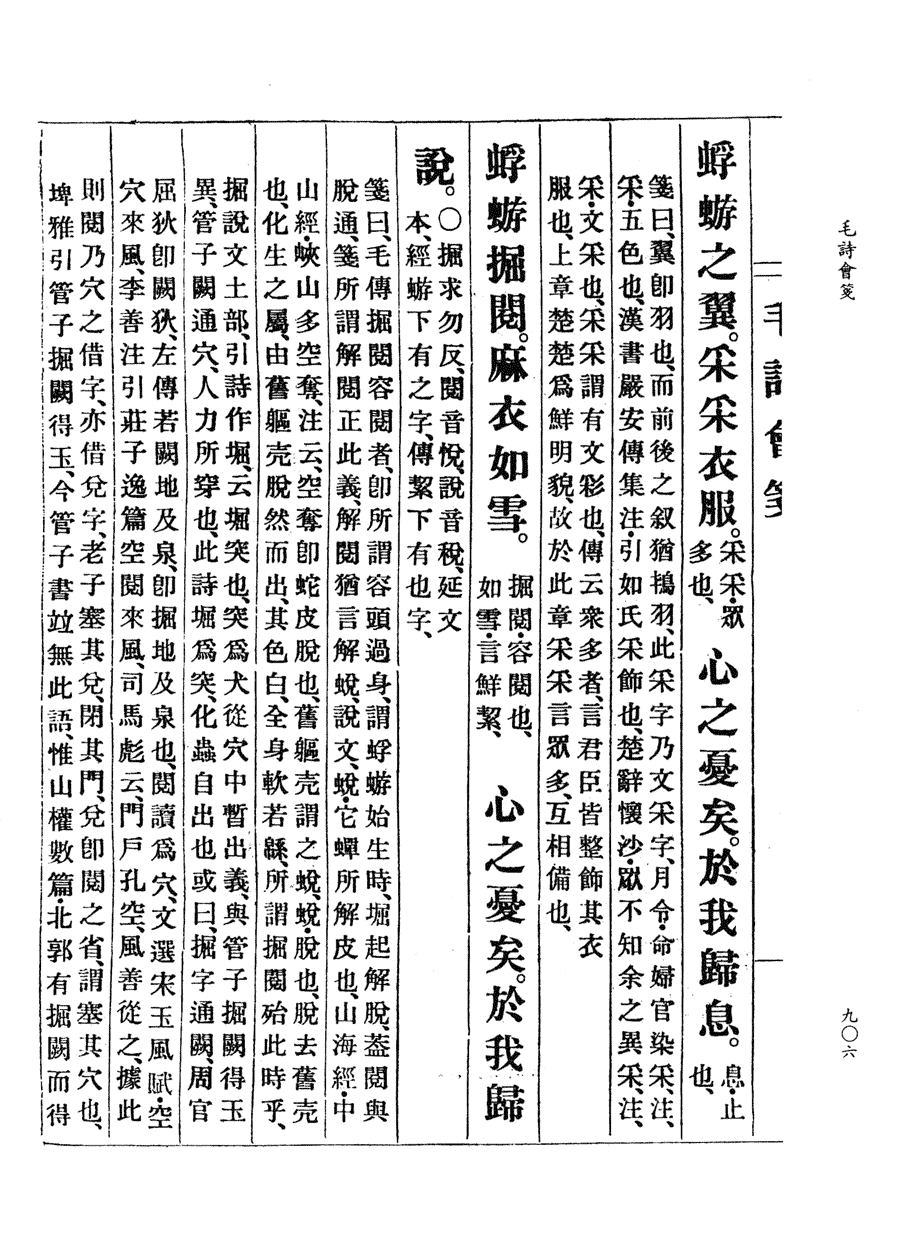 毛詩會箋
九〇六
毛詩會箋
蜉蝣之翼。采采衣服。采采、眾多也、心之憂矣。於我歸息。息、止也、
箋曰、翼卽羽也、而前後之叙猶鴇羽、此采字乃文采字、月令、命婦官染采、注、
采、五色也、漢書嚴安傳集注、引如氏采飾也、楚辭懷沙、眾不知余之異采、注、
采、文采也、采采謂有文彩也、傳云衆多者、言君臣皆整飾其衣
服也、上章楚楚爲鮮明貌、故於此章采采言眾多、互相備也、
蜉蝣掘閱。麻衣如雪。掘閱、容閱也、如雪、言鮮絜、心之憂矣。於我歸
說。〇掘求勿反、閱音悅、說音稅、延文本、經蝣下有之字、傳絜下有也字、
箋曰、毛傳掘閱容閱者、卽所謂容頭過身、謂蜉蝣始生時、堀起解脫、葢閱與
脫通、箋所謂解閱正此義、解閱猶言解蛻、說文、蛻、它蟬所解皮也、山海經、中
山經、蛺山多空奪、注云、空奪卽蛇皮脫也、舊軀壳謂之蛻、蛻、脫也、脫去舊壳
也、化生之屬、由舊軀壳脫然而出、其色白、全身軟若緜、所謂掘閱殆此時乎、
掘說文土部、引詩作堀、云堀突也、突爲犬從穴中暫出義、與管子掘闕得玉
異、管子闕通穴、人力所穿也、此詩堀爲突、化蟲自出也或曰、掘字通闕、周官
屈狄卽闕狄、左傳若闕地及泉、卽掘地及泉也、閱讀爲穴、文選宋玉風賦、空
穴來風、李善注引莊子逸篇空閱來風、司馬彪云、門戶孔空、風善從之、據此
則閱乃穴之借字、亦借兌字、老子塞其兌、閉其門、兌卽閱之省、謂塞其穴也、
埤雅引管子掘闕得玉、今管子書竝無此語、惟山權數篇、北郭有掘闕而得